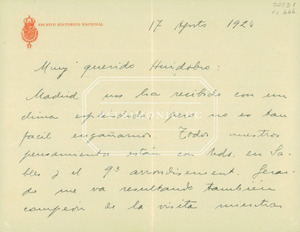 ARCHIVO HISTORICO NACIONAL
17 Agosto 1924
Muy querido Huidobro:
Madrid nos ha recibido con un
clima espléndido, pero no es tan
facil engañarnos. Todos nuestros
pensamientos están con Uds. en Sa-
bles y el 9º arrondisement.
me va resultando también
campeón de la visita mientras